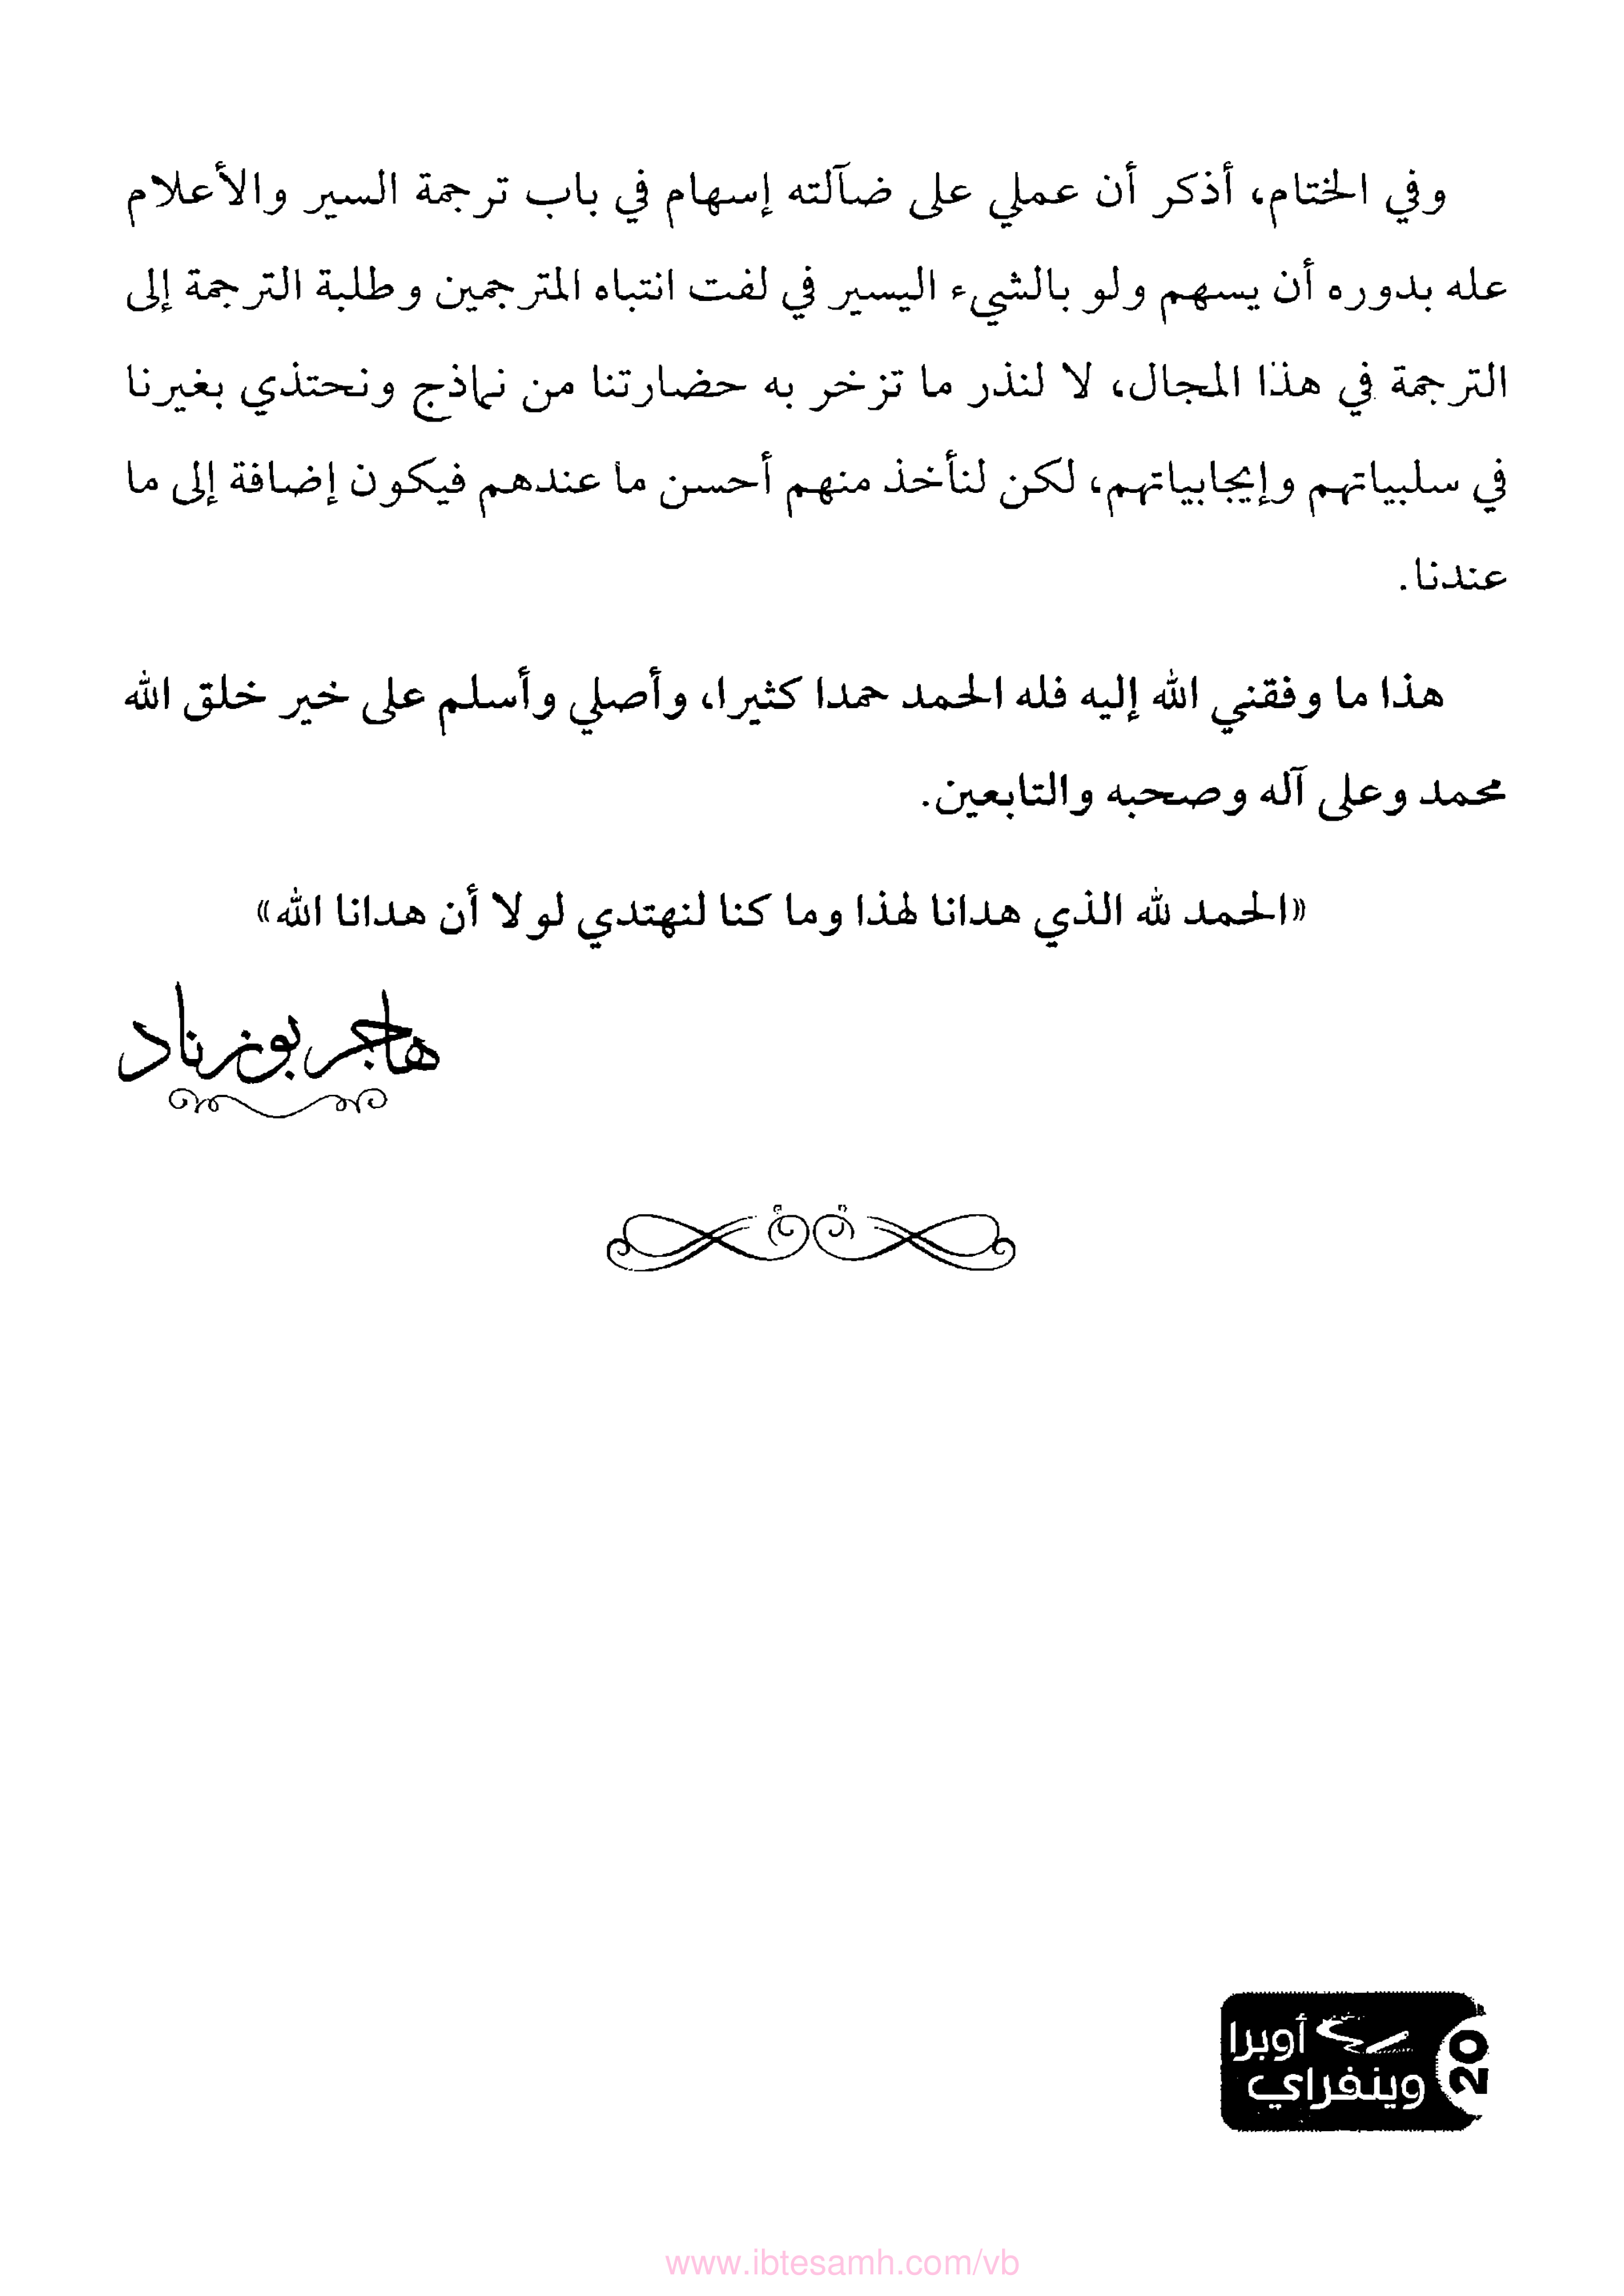 وفي الختام، أذكر أن عملي على ضآلته إسهام في باب ترجمة السير والأعلام
عله بدوره أن يسهم ولو بالشيء اليسير في لفت انتباه المترجمين وطلبة الترجمة إلى
الترجمة في هذا المجال، لا لنذر ما تزخر به حضارتنا من نماذج ونحتذي بغيرنا
في سلبياتهم وإيجابياتهم، لكن لنأخذ منهم أحسن ما عندهم فيكون إضافة إلى ما
عندنا.
هذا ما وفقني الله إليه فله الحمد حمدا كثيرا، وأصلي وأسلم على خير خلق الله
محمد وعلى آله وصحبه والتابعين.
«الحمد لله الذي هدانا لهذا وما كنا لنهتدي لولا أن هدانا الله»
هاجر بوزناد
أوبرا
وينفراي
20
www.ibtesamh.com/vb